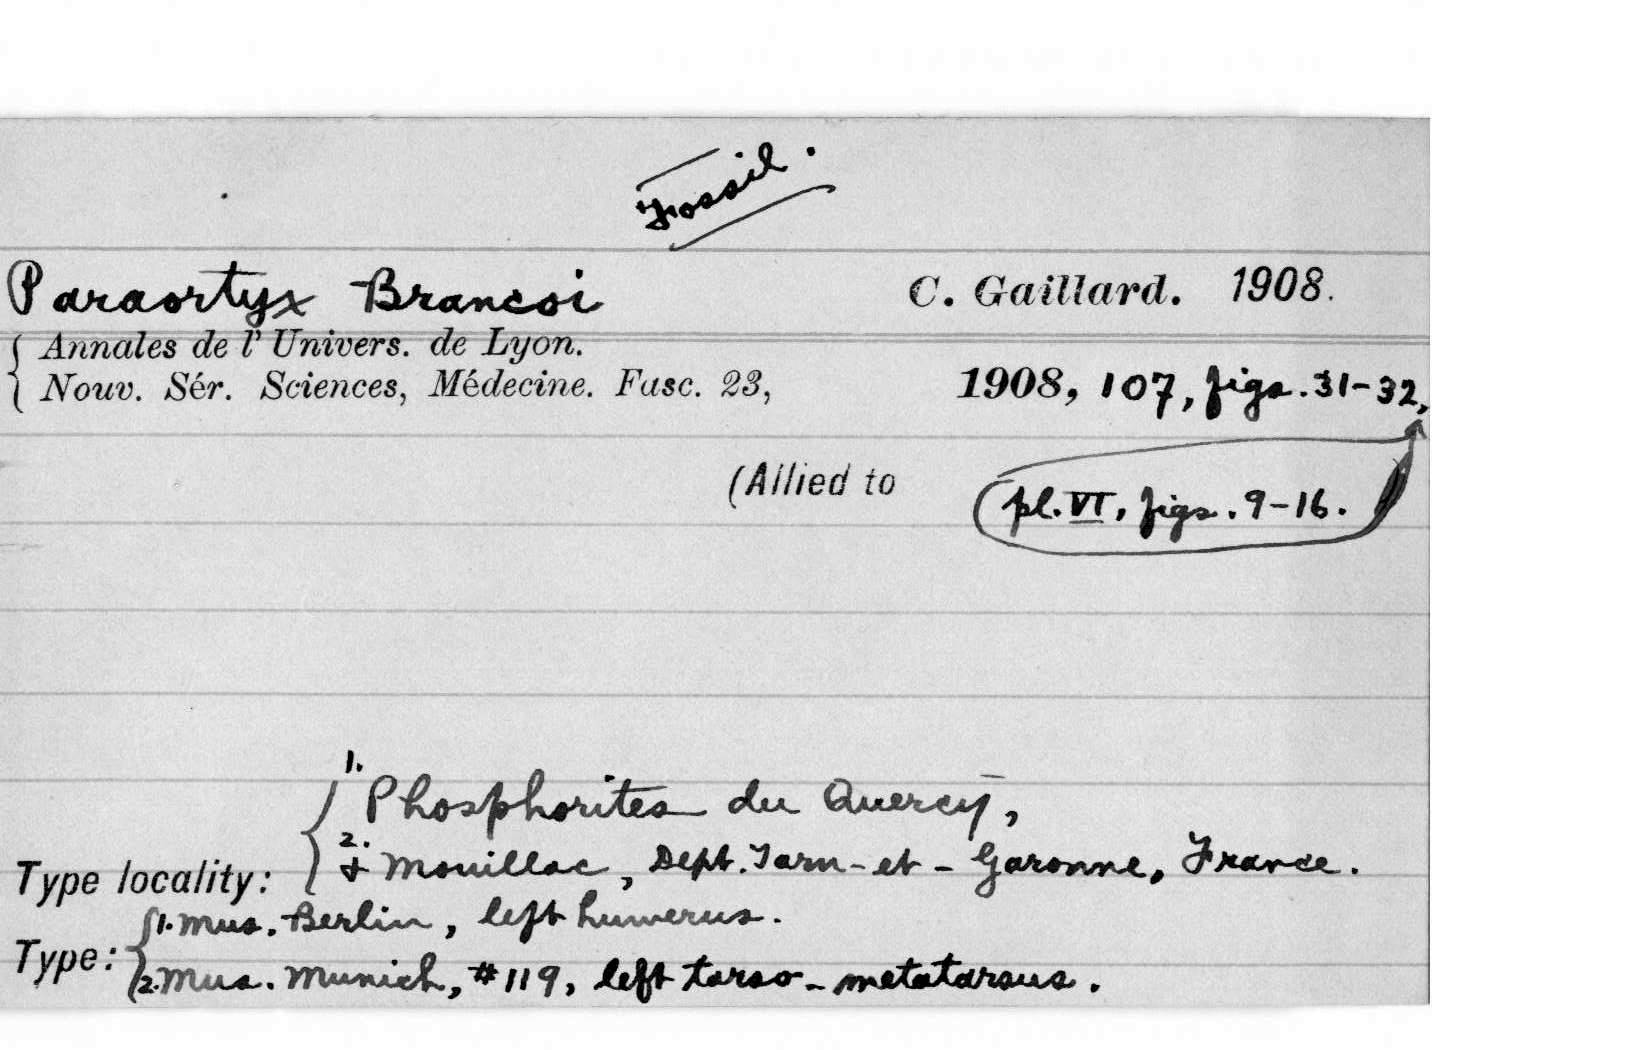 Fossil.
Paraortyx Brancoi C. Gaillard. 1908.
Annales de l' Univers. de Lyon.
Nouv. Sér. Sciences, Médecine. Fasc. 23, 1908, 107, figs. 31-32,
(Allied to pl. VI, figs. 9-16.
1. Phosphorites du Quercy,
2. + Mouillac, Dept. Tarn-et-Garonne, France.
Type locality:
1. Mus. Berlin, left humerus.
Type:
2. Mus. Munich, #119, left tarso-metatarsus.